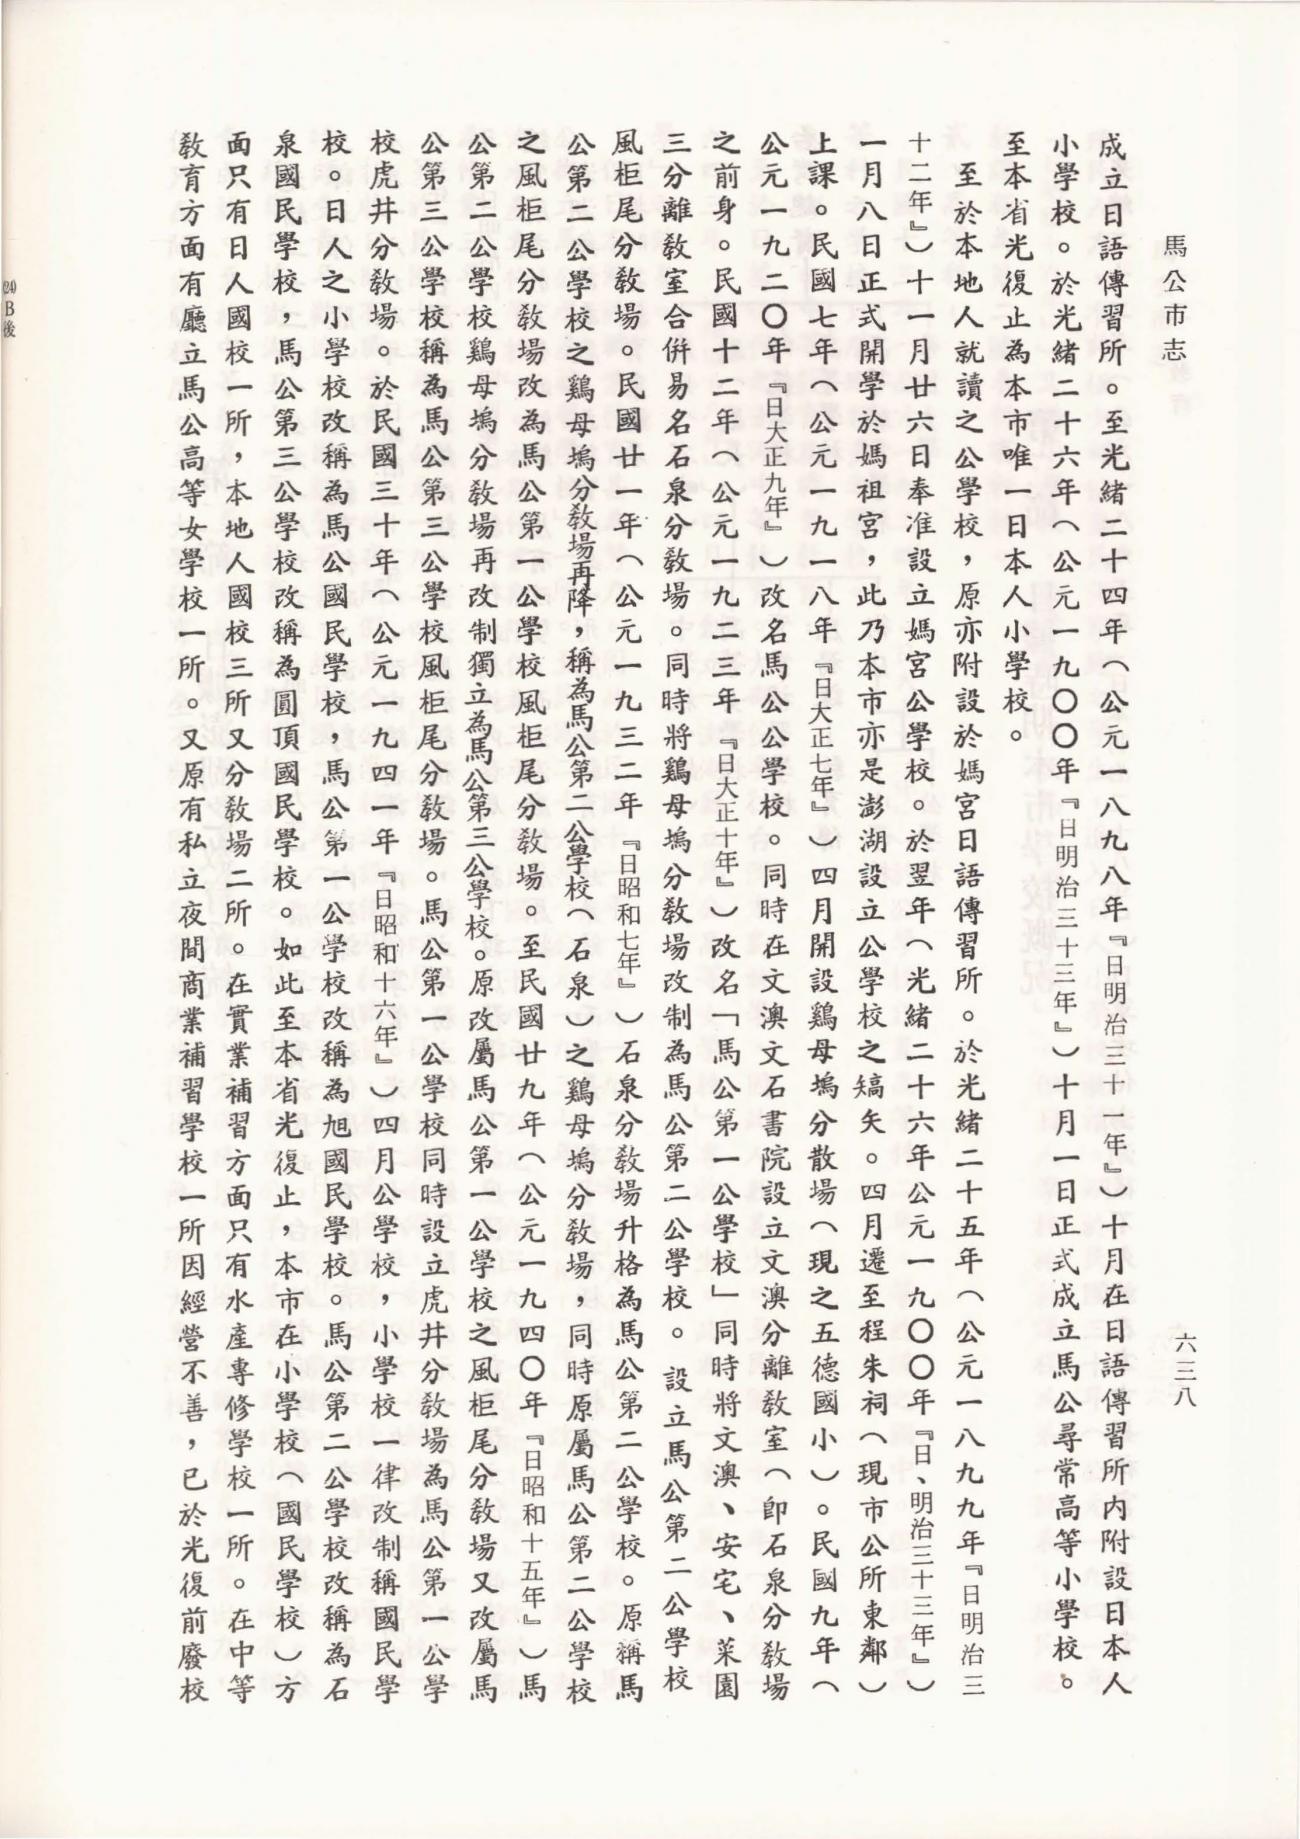 馬公市志
六三八
成立日語傳習所。至光緒二十四年（公元一八九八年『日明治三十一年』）十月在日語傳習所內附設日本人
小學校。於光緒二十六年（公元一九〇〇年『日明治三十三年』）十月一日正式成立馬公尋常高等小學校。
至本省光復止為本市唯一日本人小學校。
至於本地人就讀之公學校，原亦附設於媽宮日語傳習所。於光緒二十五年（公元一八九九年『日明治三
十二年』）十一月廿六日奉准設立媽宮公學校。於翌年（光緒二十六年公元一九〇〇年『日、明治三十三年』）
一月八日正式開學於媽祖宮，此乃本市亦是澎湖設立公學校之矯矢。四月遷至程朱祠（現市公所東鄰）
上課。民國七年（公元一九一八年『日大正七年』）四月開設鷄母塢分散場（現之五德國小）。民國九年（
公元一九二〇年『日大正九年』）改名馬公公學校。同時在文澳文石書院設立文澳分離教室（卽石泉分敎場
之前身。民國十二年（公元一九二三年『日大正十年』）改名「馬公第一公學校」同時將文澳、安宅、菜園
三分離敎室合併易名石泉分敎場。同時將鷄母塢分敎場改制為馬公第二公學校。 設立馬公第二公學校
風柜尾分敎場。民國廿一年（公元一九三二年『日昭和七年』）石泉分敎場升格為馬公第二公學校。原稱馬
公第二公學校之鷄母塢分敎場再降，稱為馬公第二公學校（石泉）之鷄母塢分敎場，同時原屬馬公第二公學校
之風柜尾分敎場改為馬公第一公學校風柜尾分敎場。至民國廿九年（公元一九四〇年『日昭和十五年』）馬
公第二公學校鷄母塢分敎場再改制獨立為馬公第三公學校。原改屬馬公第一公學校之風柜尾分敎場又改屬馬
公第三公學校稱為馬公第三公學校風柜尾分敎場。馬公第一公學校同時設立虎井分敎場為馬公第一公學
校虎井分敎場。於民國三十年（公元一九四一年『日昭和十六年』）四月公學校，小學校一律改制稱國民學
校。日人之小學校改稱為馬公國民學校，馬公第一公學校改稱為旭國民學校。馬公第二公學校改稱為石
泉國民學校，馬公第三公學校改稱為圓頂國民學校。如此至本省光復止，本市在小學校（國民學校）方
面只有日人國校一所，本地人國校三所又分敎場二所。在實業補習方面只有水產專修學校一所。在中等
敎育方面有廳立馬公高等女學校一所。又原有私立夜間商業補習學校一所因經營不善，已於光復前廢校
(24)B後